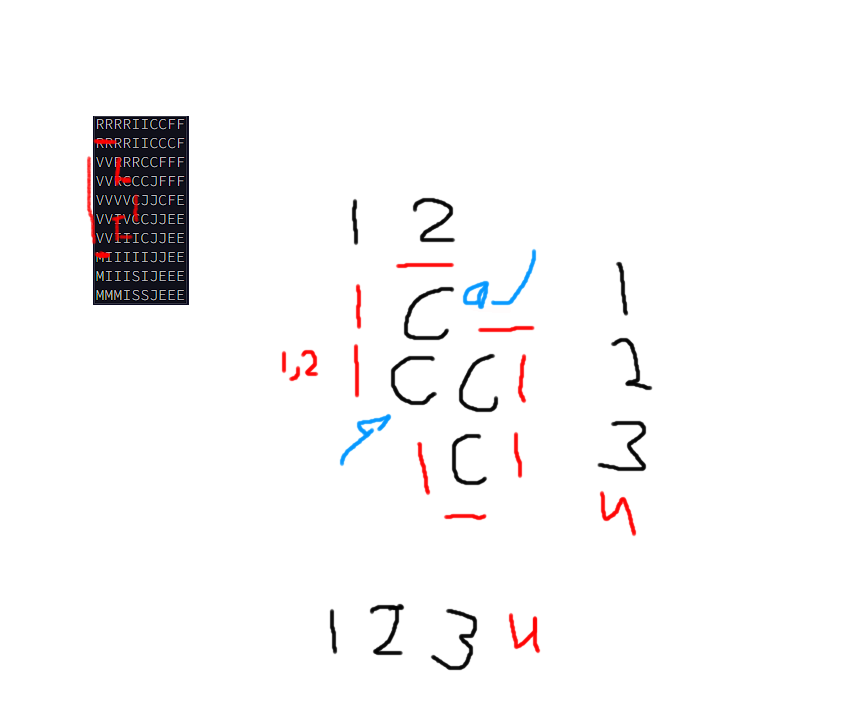 RRRRIICCFF
RRRRIICCCF
VVRRRCCFFF
VVRCCCJFFF
VVVVCJJCFE
VVIVCCJJEE
VVIIICJJEE
MIIIIIJJEE
MIIISIJEEE
MMMISSJEEE
1 2
C a 1
1,2 C C 2
C 3
4
1 2 3 4